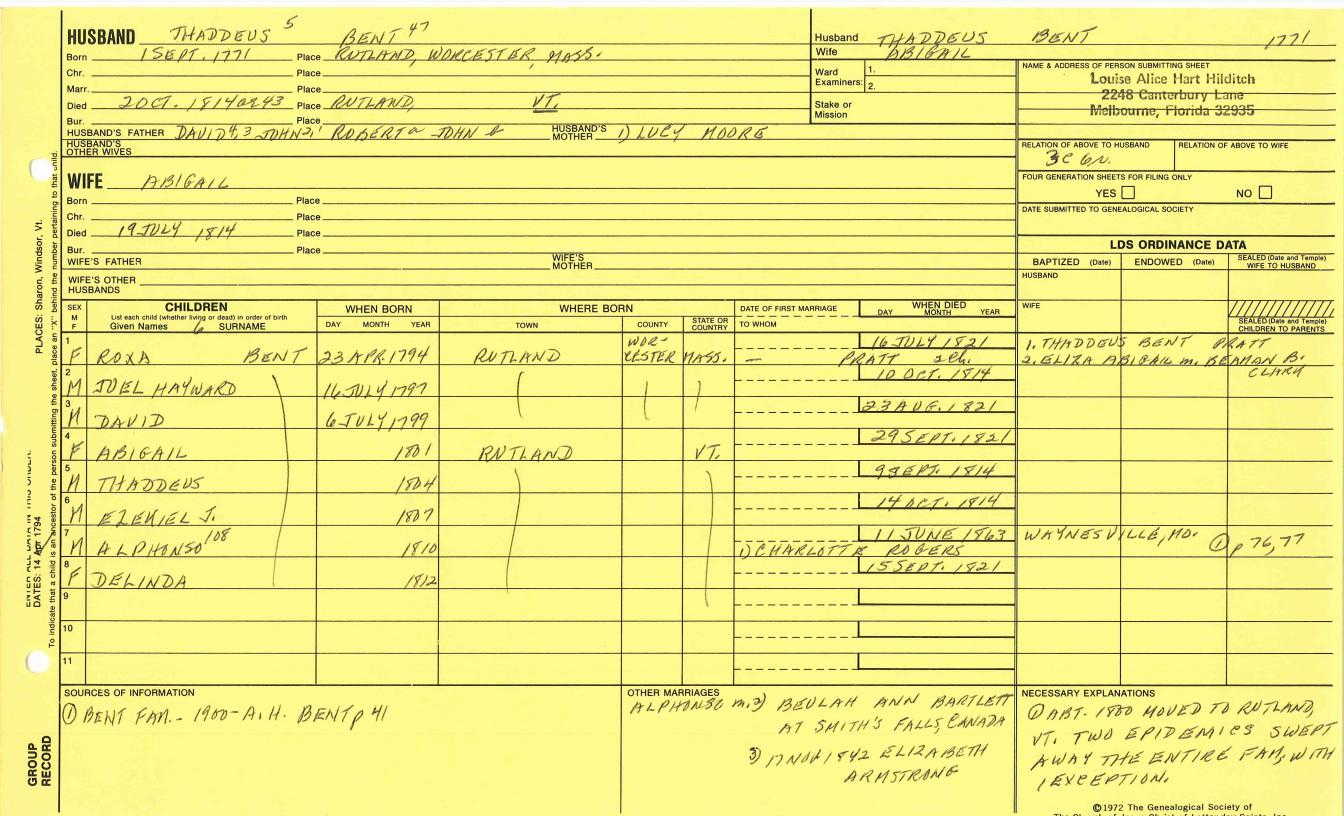 HUSBAND THADDEUS 5 BENT 47
Born 1 SEPT. 1771 Place RUTLAND, WORCESTER, MASS.
Chr. Place
Marr. Place
Died 2 OCT. 1814 or 43 Place RUTLAND, VT.
Bur. Place
HUSBAND'S FATHER DAVID 4, 3 JOHN 2, 1 ROBERT JOHN HUSBAND'S MOTHER 1) LUCY MOORE
HUSBAND'S OTHER WIVES
Husband THADDEUS BENT 1771
Wife ABIGAIL
Ward Examiners: 1.
2.
Stake or Mission
NAME & ADDRESS OF PERSON SUBMITTING SHEET
Louise Alice Hart Hilditch
2248 Canterbury Lane
Melbourne, Florida 32935
RELATION OF ABOVE TO HUSBAND RELATION OF ABOVE TO WIFE
3C 6r.
FOUR GENERATION SHEETS FOR FILING ONLY
YES NO
DATE SUBMITTED TO GENEALOGICAL SOCIETY
WIFE ABIGAIL
Born Place
Chr. Place
Died 19 JULY 1814 Place
Bur. Place
WIFE'S FATHER WIFE'S MOTHER
WIFE'S OTHER HUSBANDS
LDS ORDINANCE DATA
BAPTIZED (Date) ENDOWED (Date) SEALED (Date and Temple) WIFE TO HUSBAND
HUSBAND
WIFE
SEALED (Date and Temple) CHILDREN TO PARENTS
SEX M F
CHILDREN
List each child (whether living or dead) in order of birth
Given Names 6 SURNAME
WHEN BORN
DAY MONTH YEAR
WHERE BORN
TOWN COUNTY STATE OR COUNTRY
DATE OF FIRST MARRIAGE
TO WHOM
WHEN DIED
DAY MONTH YEAR
1 F ROXA BENT 23 APR. 1794 RUTLAND WORCESTER MASS. — PRATT 2ch. 16 JULY 1821 1. THADDEUS BENT PRATT
2. ELIZA ABIGAIL m. BEAMON B. CLARK
2 M JOEL HAYWARD 16 JULY 1797 10 OCT. 1814
3 M DAVID 6 JULY 1799 23 AUG. 1821
4 F ABIGAIL 1801 RUTLAND VT. 29 SEPT. 1821
5 M THADDEUS 1804 9 SEPT. 1814
6 M EZEKIEL J. 1807 14 OCT. 1814
7 M ALPHONSO 108 1810 1) CHARLOTTE ROGERS 11 JUNE 1863 WAYNESVILLE, MO. ① p 76, 77
8 F DELINDA 1812 15 SEPT. 1821
9
10
11
SOURCES OF INFORMATION
① BENT FAM. - 1900 - A.H. BENT p 41
OTHER MARRIAGES
ALPHONSO m. 2) BEULAH ANN BARTLETT
AT SMITH'S FALLS, CANADA
3) 17 NOV 1842 ELIZABETH
ARMSTRONG
NECESSARY EXPLANATIONS
① ABT. 1800 MOVED TO RUTLAND,
VT. TWO EPIDEMICS SWEPT
AWAY THE ENTIRE FAM, WITH
1 EXCEPTION.
©1972 The Genealogical Society of
PLACES: Sharon, Windsor, Vt.
DATES: 14 Apr 1794
To indicate that a child is an ancestor of the person submitting the sheet, place an "X" behind the number pertaining to that child.
GROUP RECORD